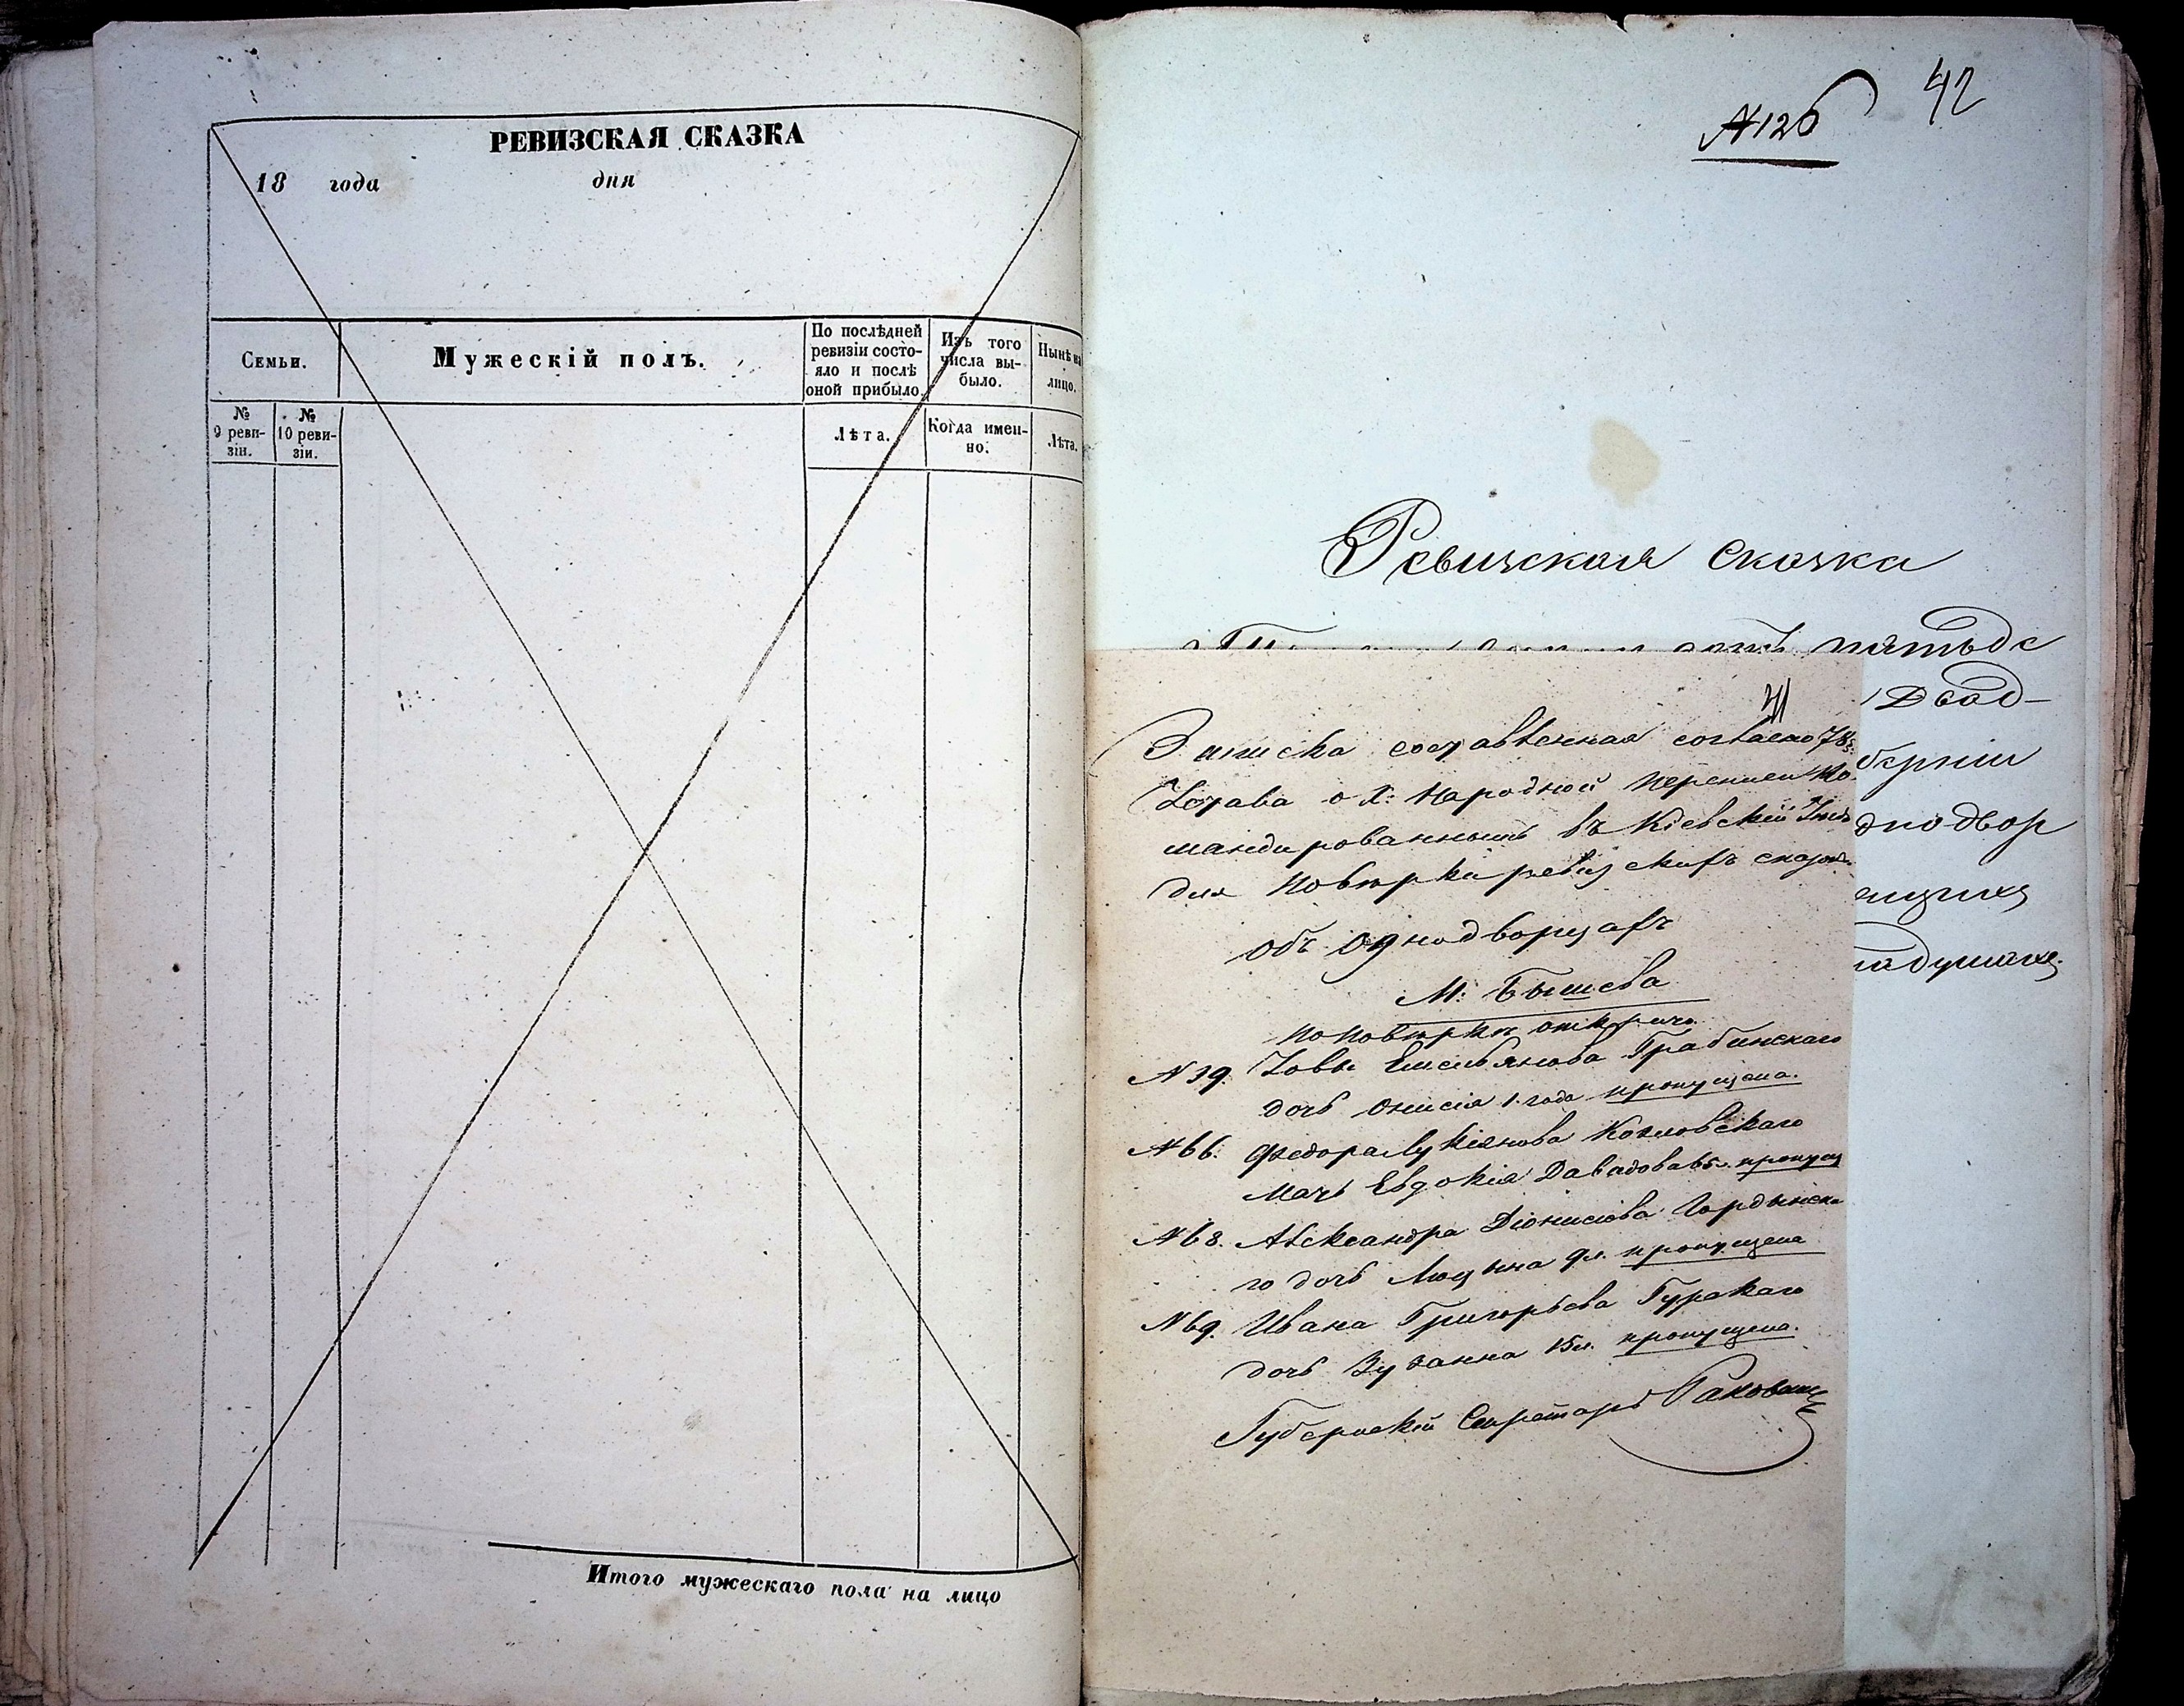 РЕВИЗСКАЯ СКАЗКА
18 года дня
Семьи.
Мужескій полъ.
По послѣдней
ревизіи состо-
яло и послѣ
оной прибыло.
Изъ того
числа вы-
было.
Нынѣ на
лицо.
№
9 реви-
зіи.
№
10 реви-
зіи.
Лѣта.
Когда имен-
но.
Лѣта.
Итого мужескаго пола на лицо
№ 126
42
Ревизская Сказка
пятьде
Двад-
берніи
днодвор
душахъ.
41
Записка составленная согласно 78
Устава о X: Народной переписи Ко
мандированнымъ въ Кіевскій
для повѣрки ревизскихъ сказокъ
объ Однодворцахъ
М: Бышева
по повѣркѣ открыто
№ 39. Іовы Емельянова Грабинскаго
дочь Онисія 1. года пропущена.
№ 66. Федора Лукіянова Козловскаго
мать Евдокія Давидова пропущ
№ 68. Александра Діонисіева Гордынска
го дочь Люцына 9 л. пропущена
№ 69. Ивана Григорьева Гурскаго
дочь Зузанна 15 л. пропущена.
Губернскій Секретарь